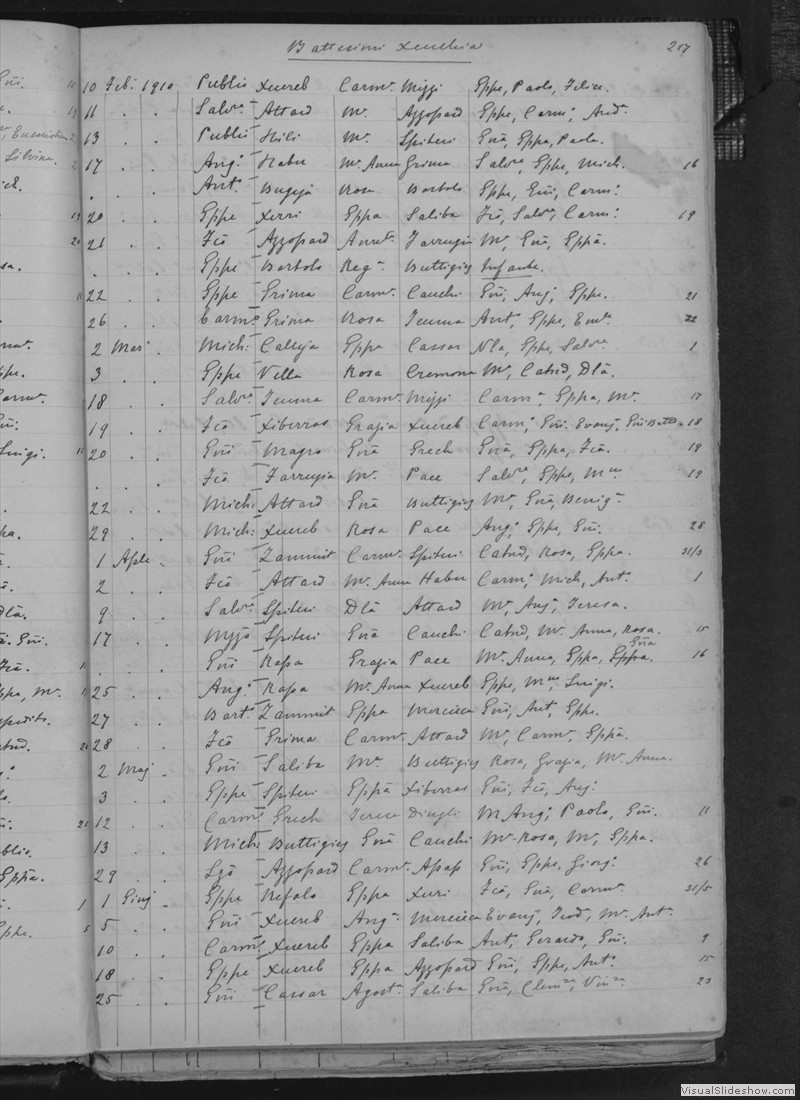 Battesimi Xeuchia 217
10 Feb. 1910 Publio Xuereb Carm. Mizzi Gppe, Paolo, Felice.
11 . . Salv. Attard M. Azzopard Gppe, Carm, And.
13 . . Publio Hili M. Spiteri Gnã, Gppa, Paola.
17 . . Ang. Haber M. Anna Grima Salv, Gppe, Mich. 16
. . . Ant. Bugeja Rosa Bartolo Gppe, Gni, Carm.
20 . . Gppe Xerri Gppa Saliba Fco, Salv, Carm. 19
21 . . Fco Azzopard Annt. Farrugia M, Gnã, Gppa.
. . . Gppe Bartolo Reg. Buttigieg Infante.
22 . . Gppe Grima Carm. Cauchi Gni, Ang, Gppe. 21
26 . . Carm. Grima Rosa Teuma Ant, Gppe, Em. 22
2 Mar. . Mich. Calleja Gppa Cassar Nla, Gppe, Salv. 1
3 . . Gppe Vella Rosa Cremona M, Catnd, Dla.
18 . . Salv. Teuma Carm. Mizzi Carm, Gppa, M. 17
19 . . Fco Xiberras Grazia Xuereb Carm, Gni. Evang, Gni Batta 18
20 . . Gni Magro Gnã Grech Gnã, Gppa, Fca. 19
. . . Fco Farrugia M. Pace Salv, Gppe, M. 19
22 . . Mich. Attard Gnã Buttigieg M, Gnã, Benig.
29 . . Mich. Xuereb Rosa Pace Ang, Gppe, Gni. 28
1 Aple . Gni Zammit Carm. Spiteri Catnd, Rosa, Gppa. 31/3
2 . . Fco Attard M. Anna Haber Carm, Mich, Ant. 1
9 . . Salv. Spiteri Dla Attard M, Ang, Teresa.
17 . . Mzzo Spiteri Gnã Cauchi Catnd, M. Anna, Rosa. 15
. . . Gni Rapa Grazia Pace M. Anna, Gppa, Gnã 16
25 . . Ang. Rapa M. Anna Xuereb Gppe, M, Luigi.
27 . . Bart. Zammit Gppa Mercieca Gni, Ant, Gppe.
28 . . Fco Grima Carm. Attard M, Carm, Gppa.
2 Maj . Gni Saliba M. Buttigieg Rosa, Grazia, M. Anna.
3 . . Gppe Spiteri Gppa Xiberras Gni, Fco, Ang.
12 . . Carm. Grech Teresa Dingli M. Ang, Paolo, Gni. 11
13 . . Mich. Buttigieg Gnã Cauchi M. Rosa, M, Gppa.
29 . . Lzo Azzopard Carm. Apap Gni, Gppe, Giorg. 26
1 Giug . Gppe Refalo Gppa Xuri Fco, Gnã, Carm. 31/5
5 . . Gni Xuereb Ang. Mercieca Evang, Teod, M. Ant.
10 . . Carm. Xuereb Gppa Saliba Ant, Gerardo, Gni. 9
18 . . Gppe Xuereb Gppa Azzopard Gni, Gppe, Ant. 15
25 . . Gni Cassar Agost. Saliba Gnã, Clem, Vin. 23
VisualSlideshow.com